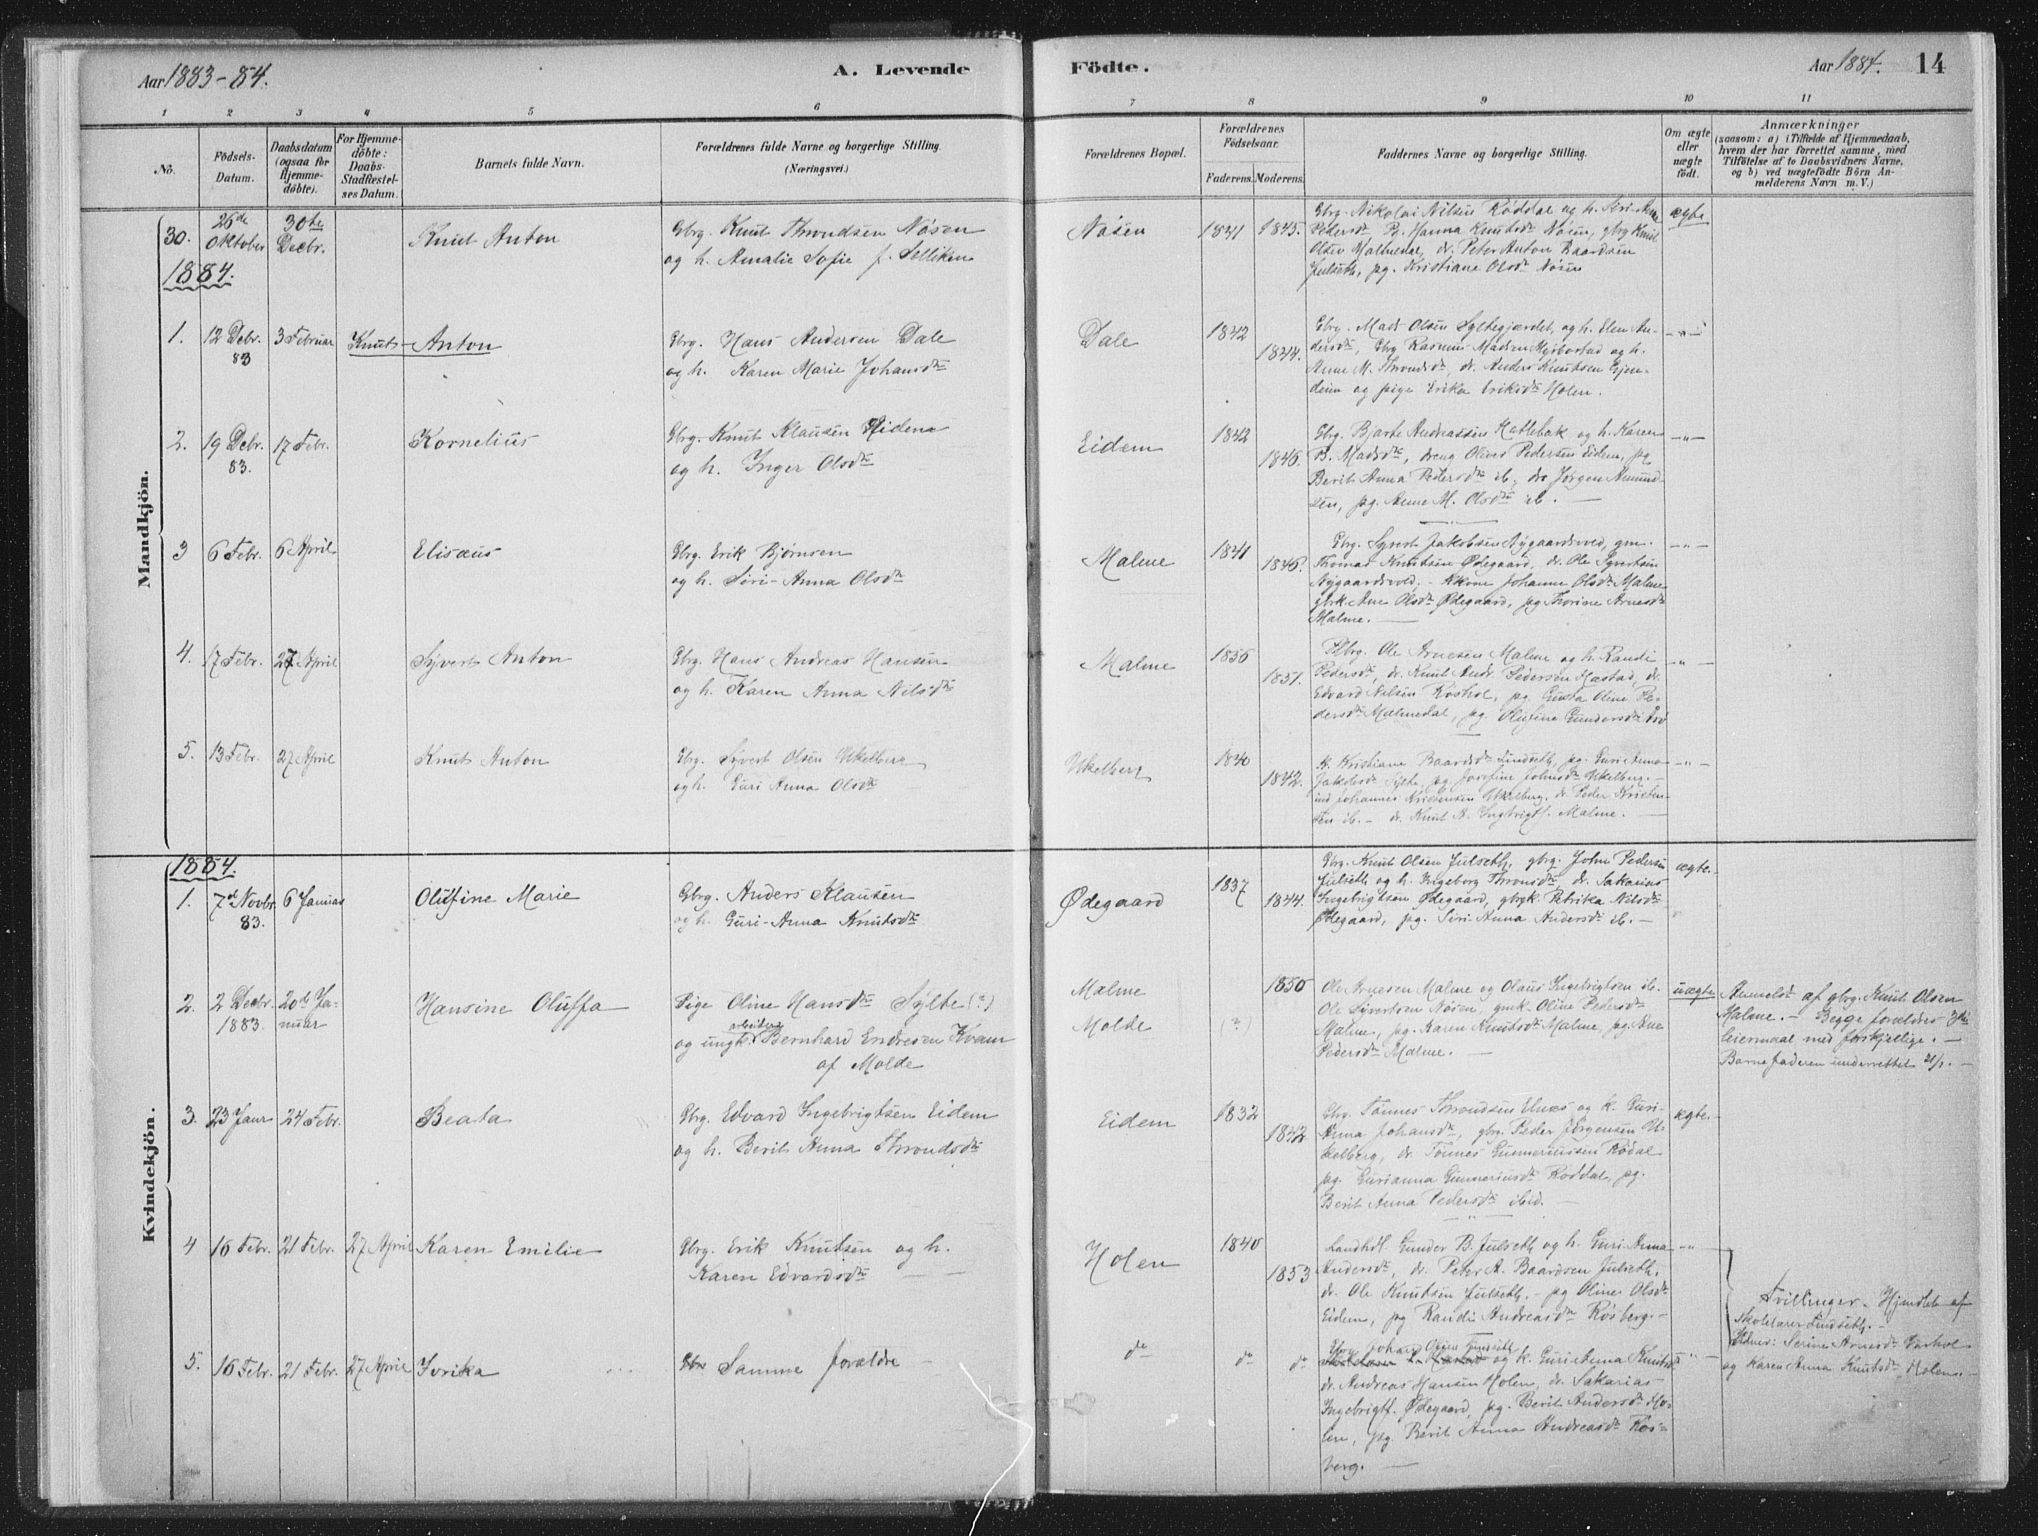 Aar 1883-84.
A. Levende
Födte.
Aar 1884.
14
1 2 3 4 5 6 7 8 9 10 11
No.
Födsels-
Datum.
Daabsdatum
(ogsaa for
Hjemme-
döbte).
For Hjemme-
döbte:
Daabs-
Stadfestel-
ses Datum.
Barnets fulde Navn.
Forældrenes fulde Navne og borgerlige Stilling.
(Næringsvei.)
Forældrenes Bopæl.
Forældrenes
Födselsaar.
Faderens. Moderens.
Faddernes Navne og borgerlige Stilling.
Om ægte
eller
uægte
födt.
Anmærkninger
(saasom: a) i Tilfælde af Hjemmedaab,
hvem der har forrettet samme, med
Tilföielse af to Daabsvidners Navne,
og b) ved uægtefödte Börn An-
melderens Navn m. V.)
Mandkjön.
30. 26de Oktober 30te Decbr. Knut Anton
Gbrg. Knut Throndsen Nøsen
og h. Amalie Sofie f. Selliken
Nøsen 1841 1845.
Gbrg. Nikolai Nilsen Røddal og h. Siri-Anne
Pedersdtr. Hanna Knutsdtr Nøsen, gbrg Knut
Olsen Malmedal, dr. Peter Anton Baardsen
Julseth, pg. Kristiane Olsdtr Nøsen
ægte
1884.
1. 12 Debr. 83 3 Februar Knut-Anton
Gbrg. Hans Andersen Dale
og h. Karen Marie Johansdtr
Dale 1842 1844.
Gbrg. Mads Olsen Syltegjærdet, og h. Elen An-
dersdtr, Gbrg Rasmus Madsen Mysbostad og h.
Anne M. Throndsdtr, dr. Anders Knutsen Ejen-
deim og pige Erika Eriksdtr Holen.
-"-
2. 19 Debr. 83. 17 Febr. Kornelius
Gbrg. Knut Klausen Eidem
og h. Inger Olsdtr
Eidem 1842 1846.
Gbrg. Bjarte Andreassen Hatlebak og h. Karen
B. Madsdtr, dreng Oliver Pedersen Eidem, pg
Berit Anna Pedersdtr ib, dr Jørgen Amund-
sen, pg. Anne M. Olsdtr ib. -
-"-
3 6 Febr. 6 April Elisæus
Gbrg. Erik Bjørnsen
og h. Siri-Anna Olsdtr
Malme 1841 1846.
Gbrg. Syvert Jakobsen Nygaardsvold, gm.
Thomas Knutsen Ødegaard, dr. Ole Syvertsen
Nygaardsvold. - Kkone Johanne Olsdtr Malme
gbrk. Ane Olsdtr Ødegaard, pg Thorine Arnesdtr
Malme. -
-"-
4. 17 Febr. 27 April Syvert Anton
Gbrg. Hans Andreas Hansen
og h. Karen Anna Nilsdtr
Malme 1836 1851.
Gbrg. Ole Arnesen Malme og h. Randi
Pedersdtr, dr. Knut Andr. Pedersen Hæstad, dr.
Edvard Nilsen Roshol, pg Gusta Oline Pe-
dersdtr Malmedal, pg. Olufine Gundersdtr
-"-
5. 13 Febr. 27 April Knut Anton
Gbrg. Syvert Olsen Ukelberg
og h. Guri Anna Olsdtr
Ukelberg 1840 1842.
k. Kristiane Baardsdtr Lindseth, pg. Guri Anna
Jakobsdtr Sylte, pg. Josefine Johnsdtr Ukelberg. -
ind Johannes Kristensen Ukelberg. dr. Peder Kristen-
sen ib. - dr. Knut A. Ingbrigts. Malme. -
-"-
Kvindekjön.
1884.
1. 7de Novbr. 83. 6 Januar Olufine Marie
Gbrg. Anders Klausen
og h. Guri-Anna Knutsdtr
Ødegaard 1837 1844.
Gbrg. Knut Olsen Julseth, gbrg. John Pedersen
Julseth og h. Ingeborg Thronsdtr, dr. Sakarias
Ingebrigtsen Ødegaard, gbrgk. Petrika Nilsdtr
Ødegaard, pg. Siri Anna Andersdtr ib. -
ægte.
2. 2 Decbr. 1883. 20de Januar Hansine Oluffa
Pige Oline Hansdtr Sylte (?)
og ungk. arbeider Bernhard Endresen Kvam
af Molde
Malme
Molde (?) 1850
Ole Arnesen Malme og Olaus Ingebrigtsen ib.
Ole Syvertsen Nøsen, gmk. Oline Pedersdtr
Malme, pg. Karen Knutsdtr Malme, pg. Ane
Pedersdtr Malme. -
uægte
Anmeldt af gbrg. Knut Olsen
Malme. - Begge forældres 3die
leiermaal med forskjellige. -
Barnefaderen underrettet 21/1. -
3. 23 Janr 24 Febr. Beata
Gbrg. Edvard Ingebrigtsen Eidem
og h. Berit Anna Throndsdtr
Eidem 1832 1842
Gbrg. Tønnes Throndsen Elnæs og k. Guri-
Anna Johansdtr, gbrg. Peder Jørgensen U-
kelberg, dr. Tønnes Gunneriussen Rødal
pg. Gurianna Gunneriusdtr Røddal, pg.
Berit Anna Pedersdtr ibid. -
ægte.
4 16 Febr. 21 Febr. 27 April Karen Emilie
Gbrg. Erik Knutsen og h.
Karen Edvardsdtr
Holen 1840 1853
Landhdl. Gunder B. Julseth og h. Guri Anna
Andersdtr, dr. Peter A. Baardsen Julseth.
dr. Ole Knutsen Julseth. - pg Oline Olsdtr
Eidem, pg Randi Andreasdtr Rösberg. -
-"-
Tvillinger. Hjmdbt af
Skolelærer Lindseth. -
Vidner: Serine Arnesdtr
og Karen Anna Knutsdtr Holen. -
5. 16 Febr. 21 Febr. 27 April Iverika
Samme forældre
do do do
Gbrg Johan Olsen
og k. Guri Anna Knutsdtr
dr. Andreas Hansen Holen, dr. Sakarias
Ingebrigts. Ødegaard, pg. Berit Andersdtr Ho-
len, pg. Berit Anna Andreasdtr Rös-
berg. -
-"-